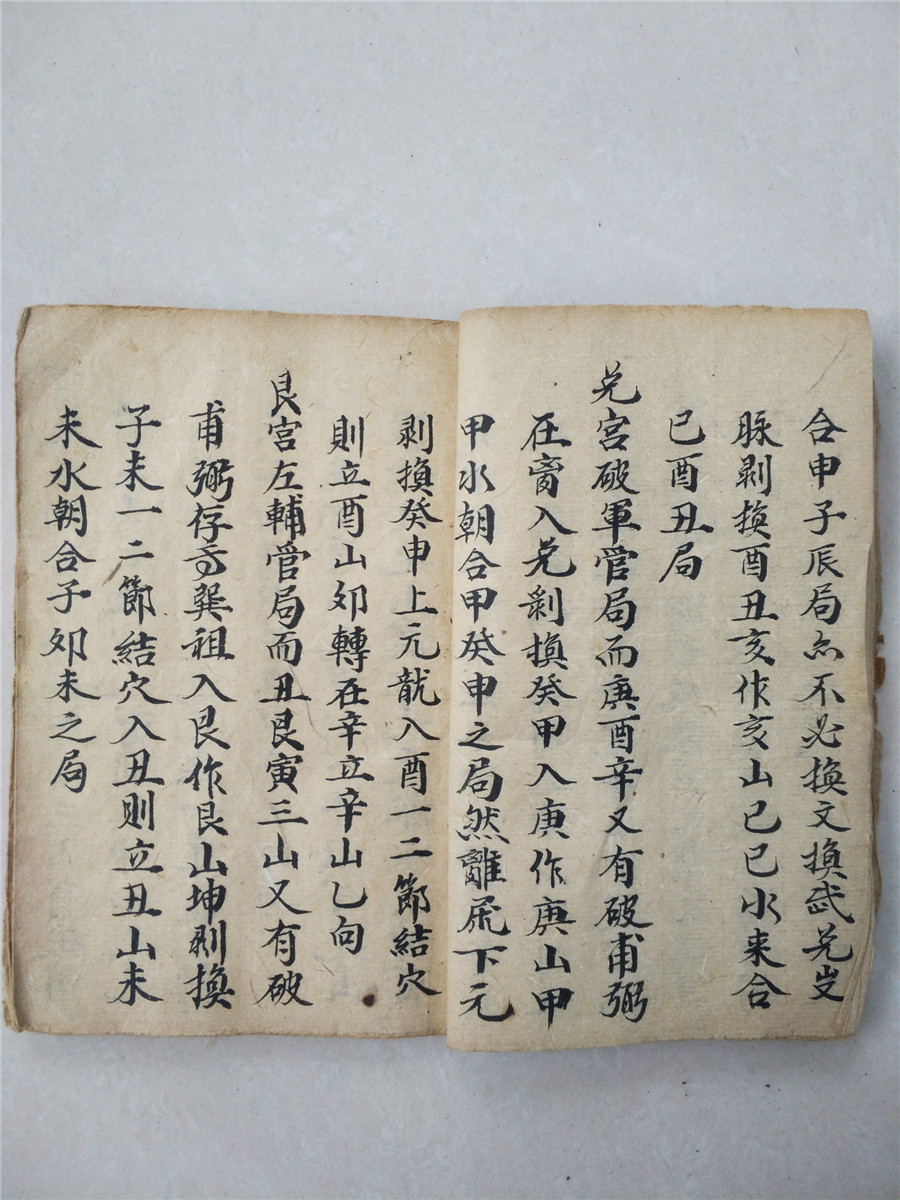 合申子辰局亦不必換文換武兑岁
脉剥換酉丑亥作亥山巳巳水来合
巳酉丑局
兑宮破軍管局而庚酉辛又有破甫弼
在啇入兑剝換癸甲入庚作庚山甲
甲水朝合甲癸申之局然離屈下元
剥換癸申上元龍入酉一二節結穴
則立酉山夘轉在辛立辛山乙向
艮宮左輔管局而丑艮寅三山又有破
甫弼存巽祖入艮作艮山坤剥換
子未一二節結穴入丑則立丑山未
未水朝合子夘未之局